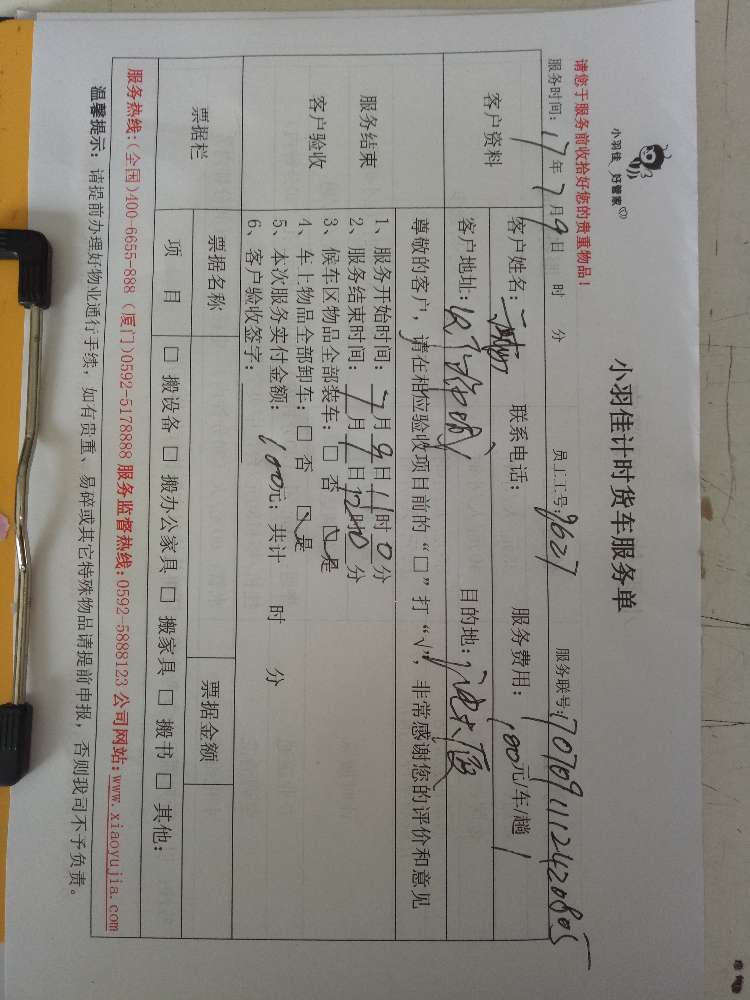 小羽佳 好管家
小羽佳计时货车服务单
请您于服务前收拾好您的贵重物品！
服务时间：17年7月9日 时 分 员工工号：9627 服务联号：707091112420805
客户资料
客户姓名： 联系电话： 服务费用：100元/车/趟
客户地址： 目的地：
尊敬的客户，请在相应验收项目前的“□”打“√”，非常感谢您的评价和意见
服务结束
客户验收
1、服务开始时间：7月9日11时0分
2、服务结束时间：7月 日12时40分
3、候车区物品全部装车：□ 否 ☑ 是
4、车上物品全部卸车：□ 否 ☑ 是
5、本次服务实付金额：100元；共计 时 分
6、客户验收签字：
票据栏
票据名称 票据金额
项 目 □ 搬设备 □ 搬办公家具 □ 搬家具 □ 搬书 □ 其他：
服务热线：(全国)400-6655-888 (厦门)0592-5178888 服务监督热线：0592-5888123 公司网站：www.xiaoyujia.com
温馨提示：请提前办理好物业通行手续，如有贵重、易碎或其它特殊物品请提前申报，否则我司不予负责。